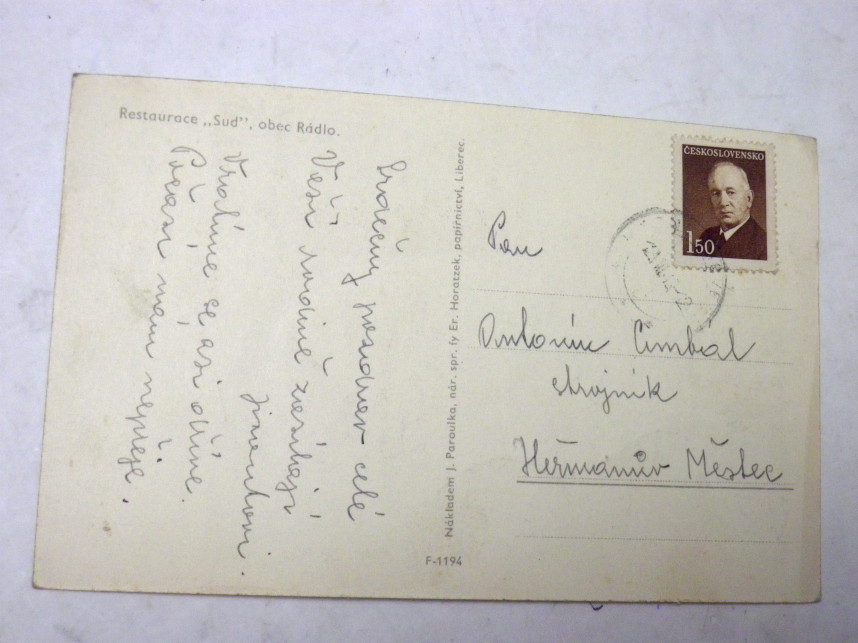 Restaurace „Sud", obec Rádlo.
Srdečný pozdrav celé
Vaší rodině zasílají
Jirmentovi.
Vrátíme se asi dříve.
Počasí nám nepřeje.
Nákladem J. Paroulka, nár. spr. fy Er. Horatzek, papírnictví, Liberec.
F-1194
ČESKOSLOVENSKO
1.50
Pan
Antonín Cimbál
strojník
Heřmanův Městec